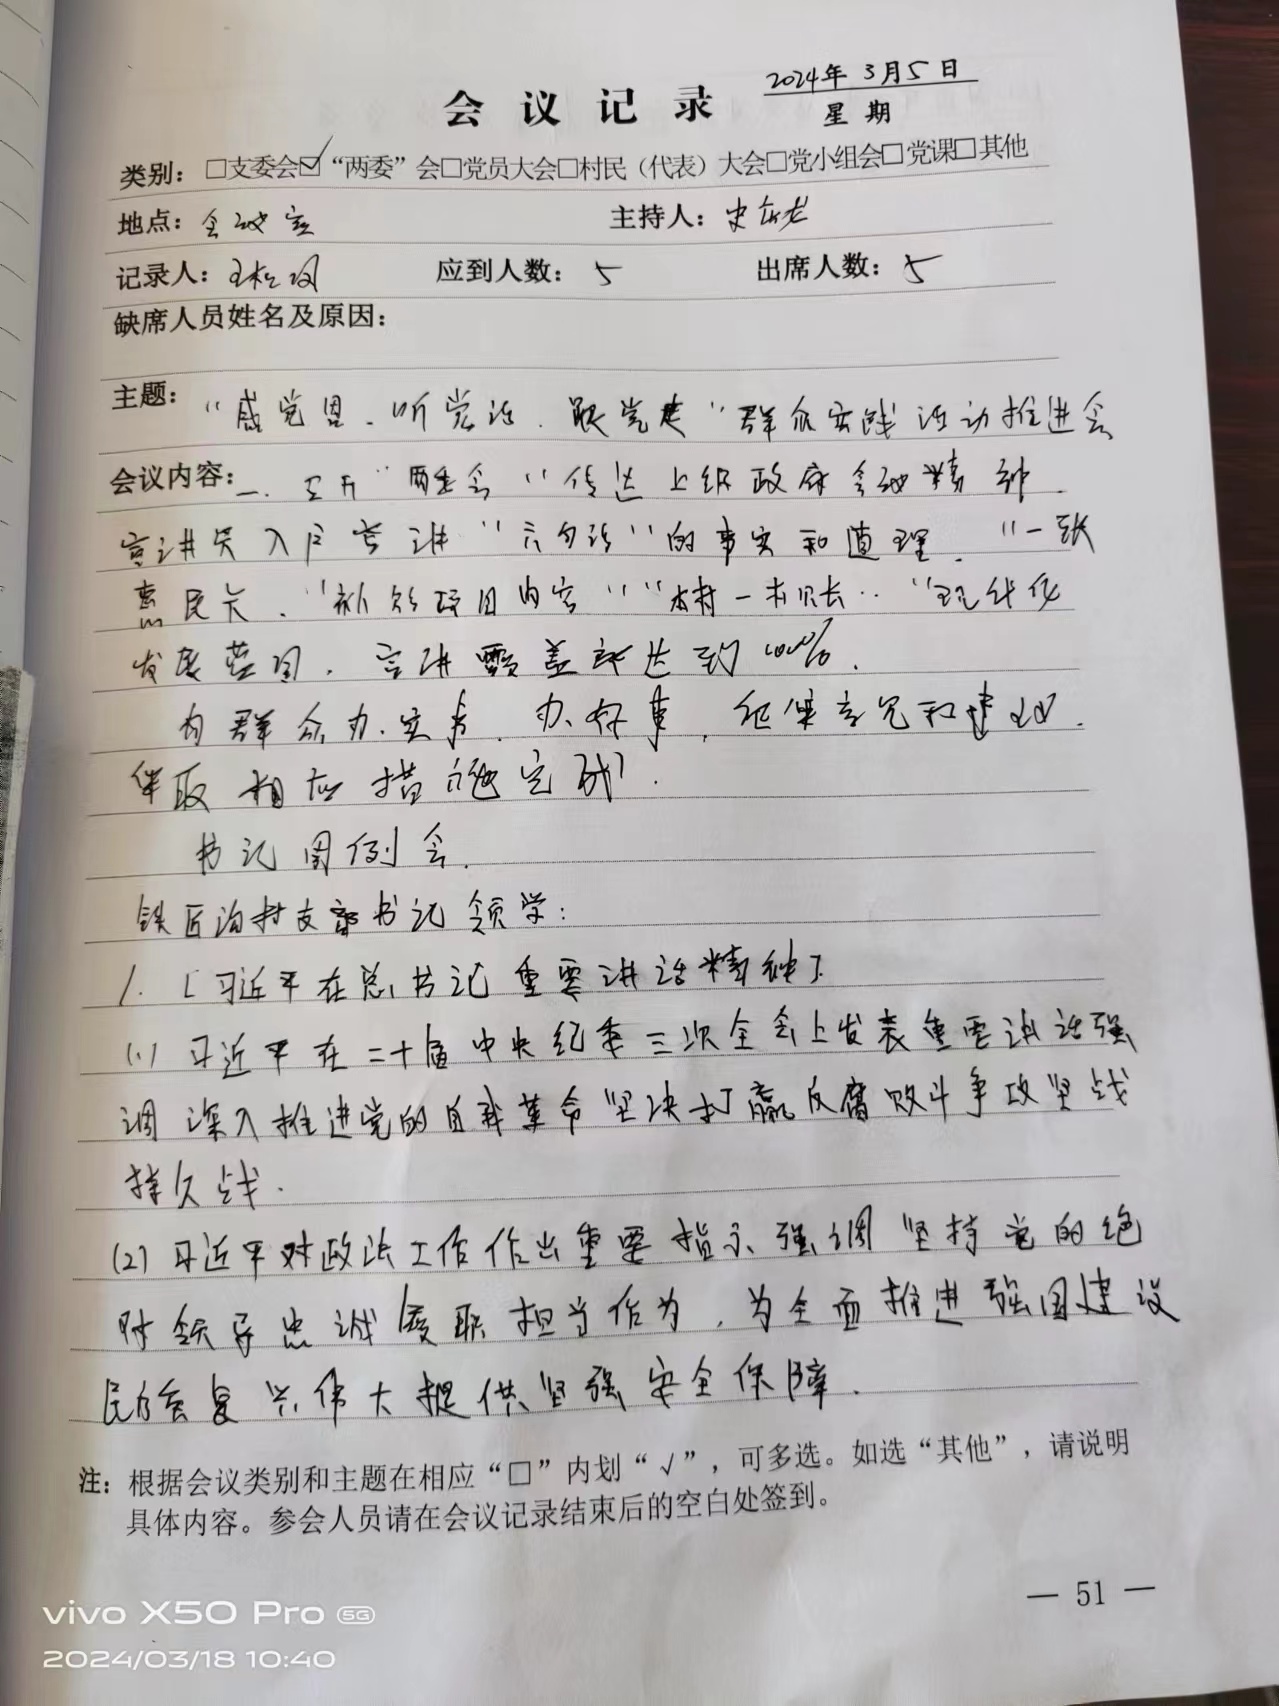 2024年3月5日
会议记录
星期
类别：□支委会☑“两委”会□党员大会□村民（代表）大会□党小组会□党课□其他
地点：会议室 主持人：史
记录人：王 应到人数：5 出席人数：5
缺席人员姓名及原因：
主题：“感党恩、听党话、跟党走”群众实践活动推进会
会议内容：一、召开“两委会”传达上级政府会议精神.
宣讲员入户宣讲“六句话”的事实和道理.“一张
惠民卡.“补贴项目内容”“本村一本账..“现代化
发展蓝图.宣讲覆盖率达到100%.
为群众办实事.办好事,征集意见和建议.
采取相应措施完成.
书记周例会.
铁匠沟村支部书记领学:
1.[习近平在总书记重要讲话精神]
(1)习近平在二十届中央纪委三次全会上发表重要讲话强
调深入推进党的自我革命坚决打赢反腐败斗争攻坚战
持久战.
(2)习近平对政法工作作出重要指示强调坚持党的绝
对领导忠诚履职担当作为,为全面推进强国建设
民族复兴伟大提供坚强安全保障.
注：根据会议类别和主题在相应“□”内划“√”，可多选。如选“其他”，请说明
具体内容。参会人员请在会议记录结束后的空白处签到。
— 51 —
vivo X50 Pro 5G
2024/03/18 10:40